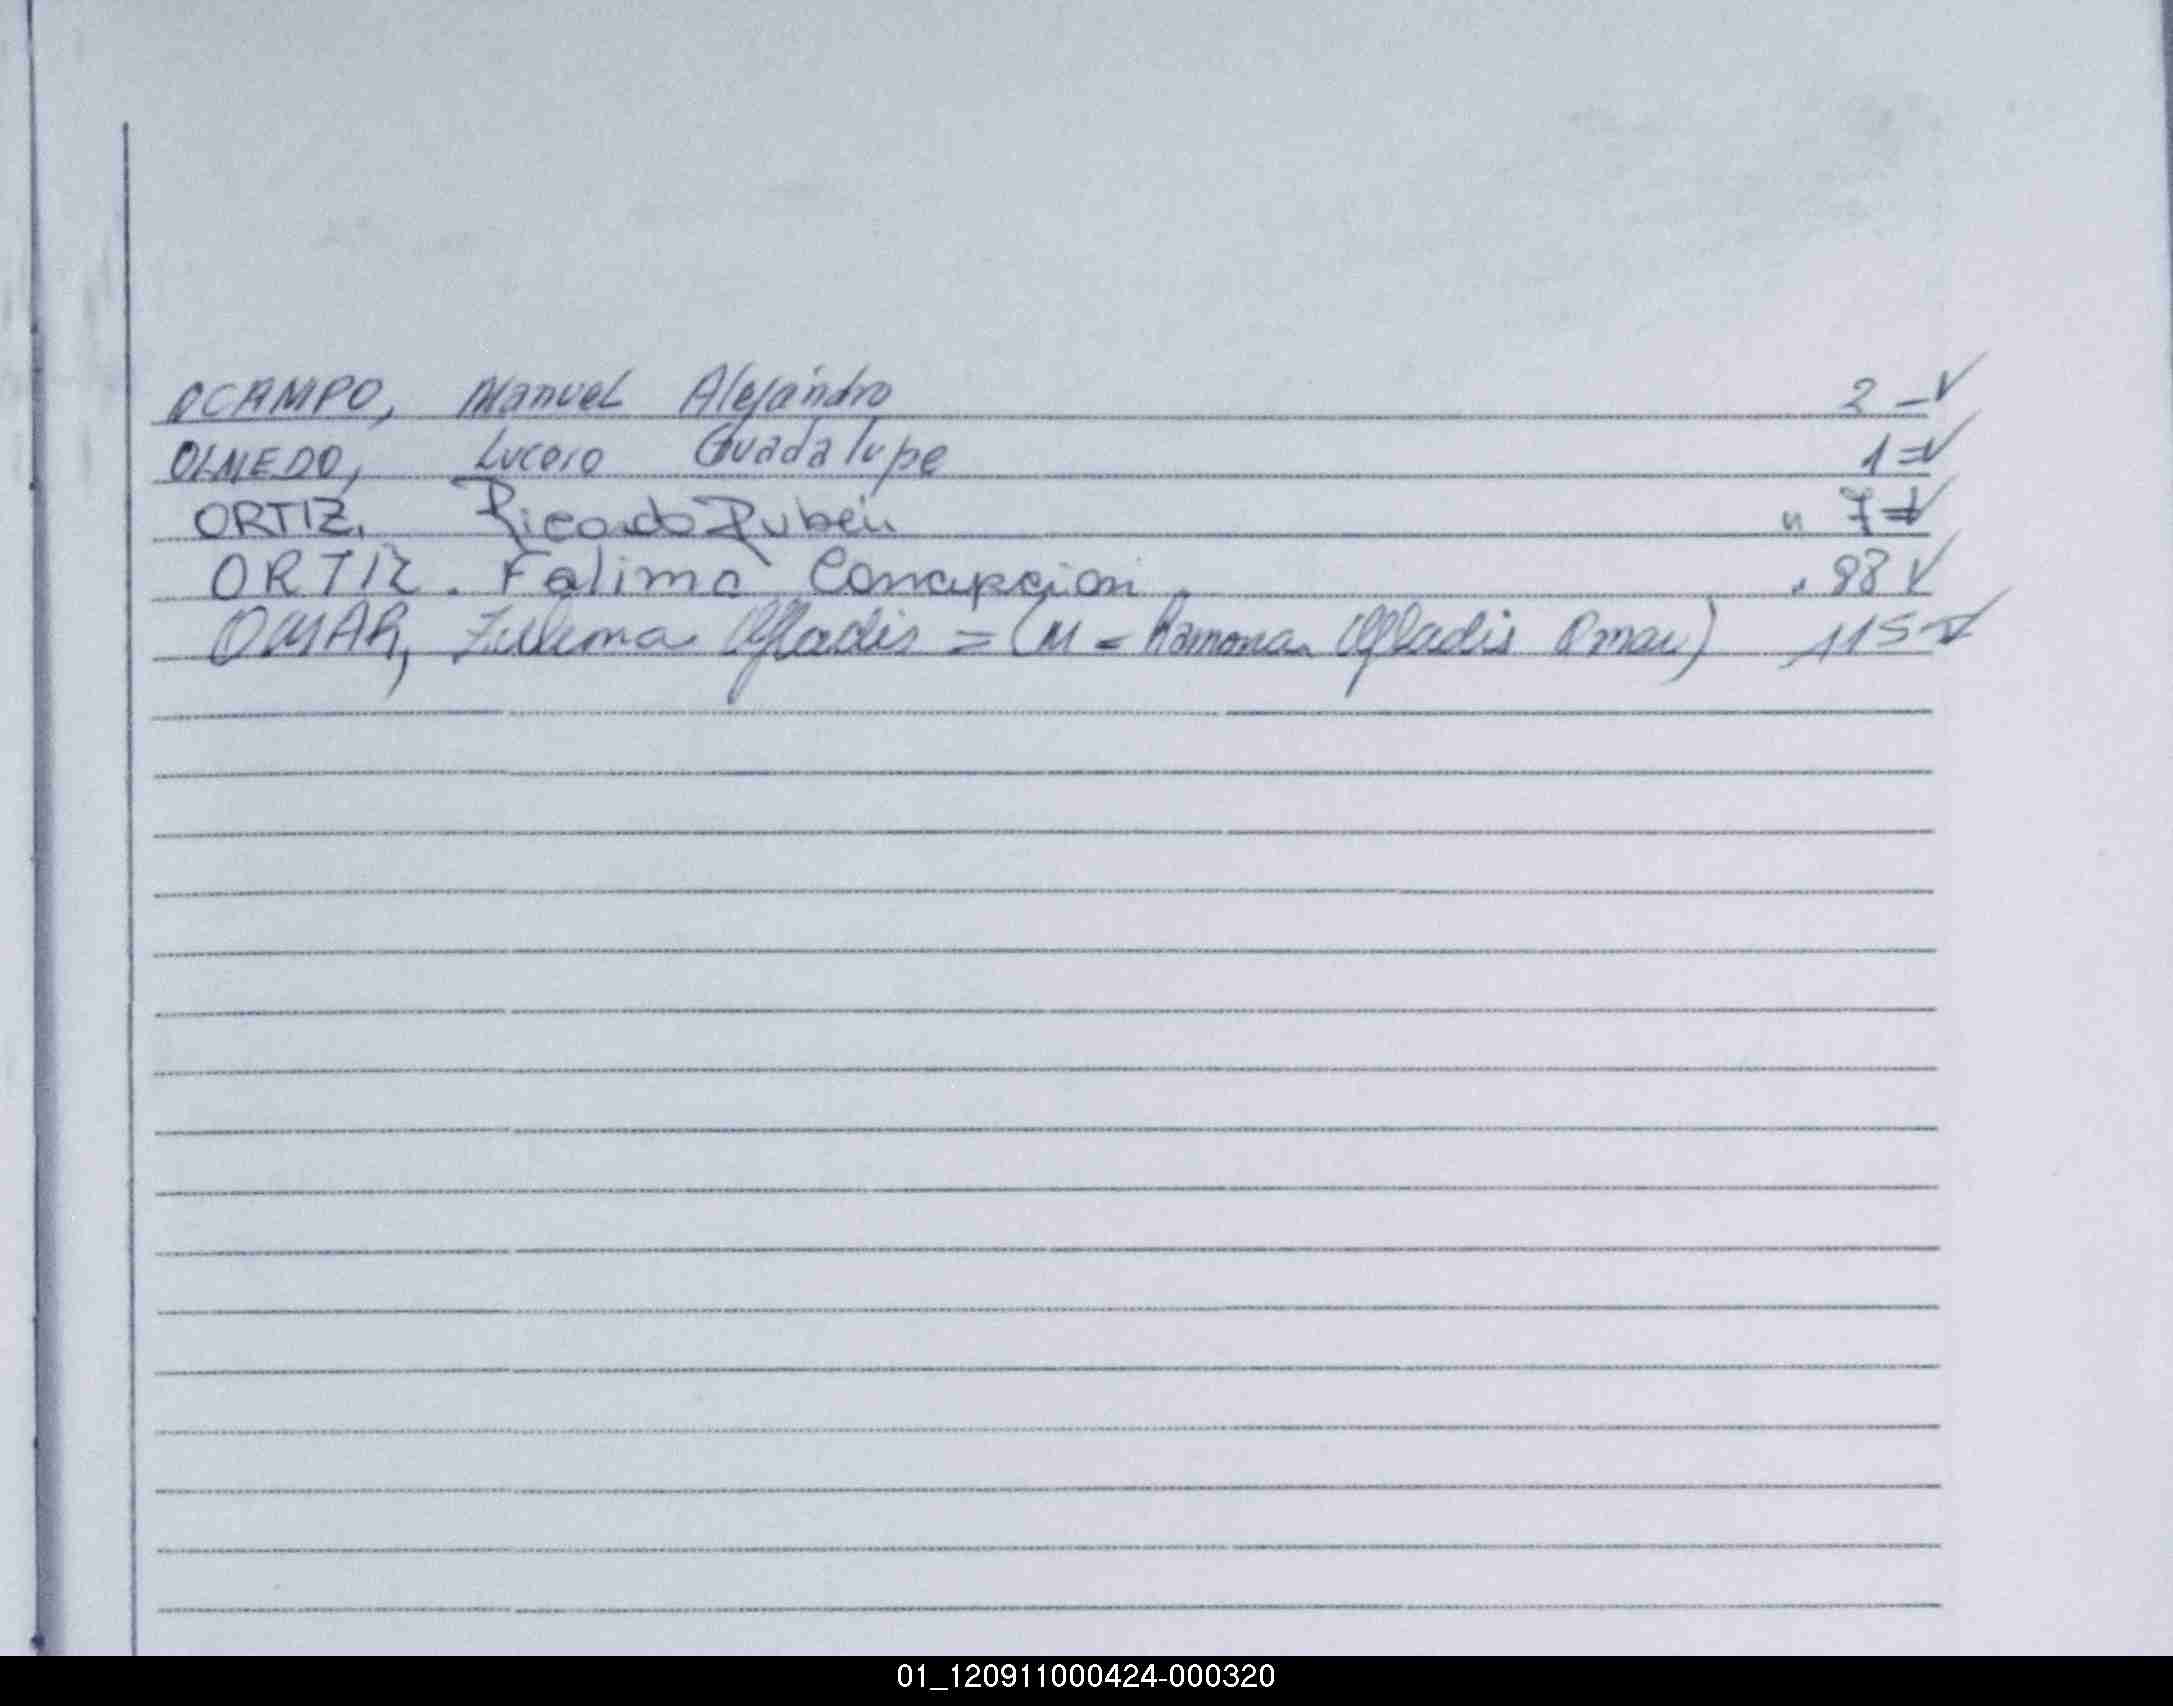 OCAMPO, Manuel Alejandro 2 -✓
OLMEDO, Lucero Guadalupe 1 =✓
ORTIZ, Ricardo Ruben " 7=✓
ORTIZ. Fatima Concepcion . 93 ✓
OMAR, Zulema Gladis = (M - Ramona Gladis Omar) 115 -✓
01_120911000424-000320